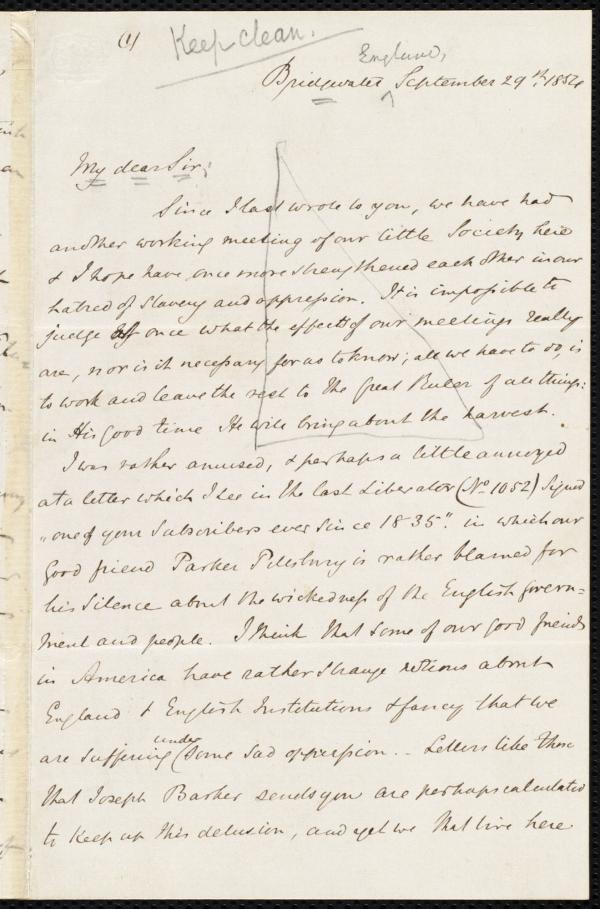 (1) Keep clean.
England,
Bridgwater September 29th, 1854
My dear Sir;
Since I last wrote to you, we have had
another working meeting of our little Society here
& I hope have once more strengthened each other in our
hatred of Slavery and oppression. It is impossible to
judge at once what the effects of our meetings really
are, nor is it necessary for us to know; all we have to do, is
to work and leave the rest to the Great Ruler of all things:
in His good time He will bring about the harvest.
I was rather amused, & perhaps a little annoyed
at a letter which I see in the last Liberator (No 1052) Signed
"one of your Subscribers ever since 1835". in which our
good friend Parker Pillsbury is rather blamed for
his silence about the wickedness of the English govern=
ment and people. I think that some of our good friends
in America have rather strange notions about
England & English Institutions & fancy that we
are suffering under some sad oppression. – Letters like those
that Joseph Barker sends you are perhaps calculated
to keep up this delusion, and yet we that live here